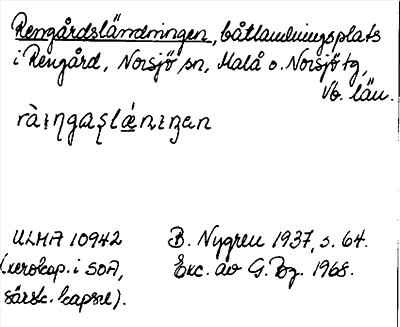 Rengårdsländningen, båtlandningsplats
i Rengård, Norsjö sn, Malå o. Norsjö tg,
Vb. län.
ULMA 10942
(xerokop. i SOA,
särsk. kapsel).
B. Nygren 1937, s. 64.
Exc. av G. Bg. 1968.